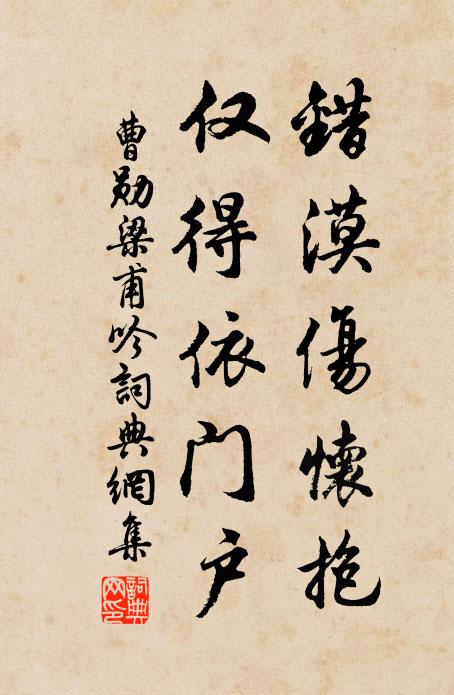 錯漠傷懷抱
仅得依门户
曹勋梁甫吟詞典網集
詞典网印